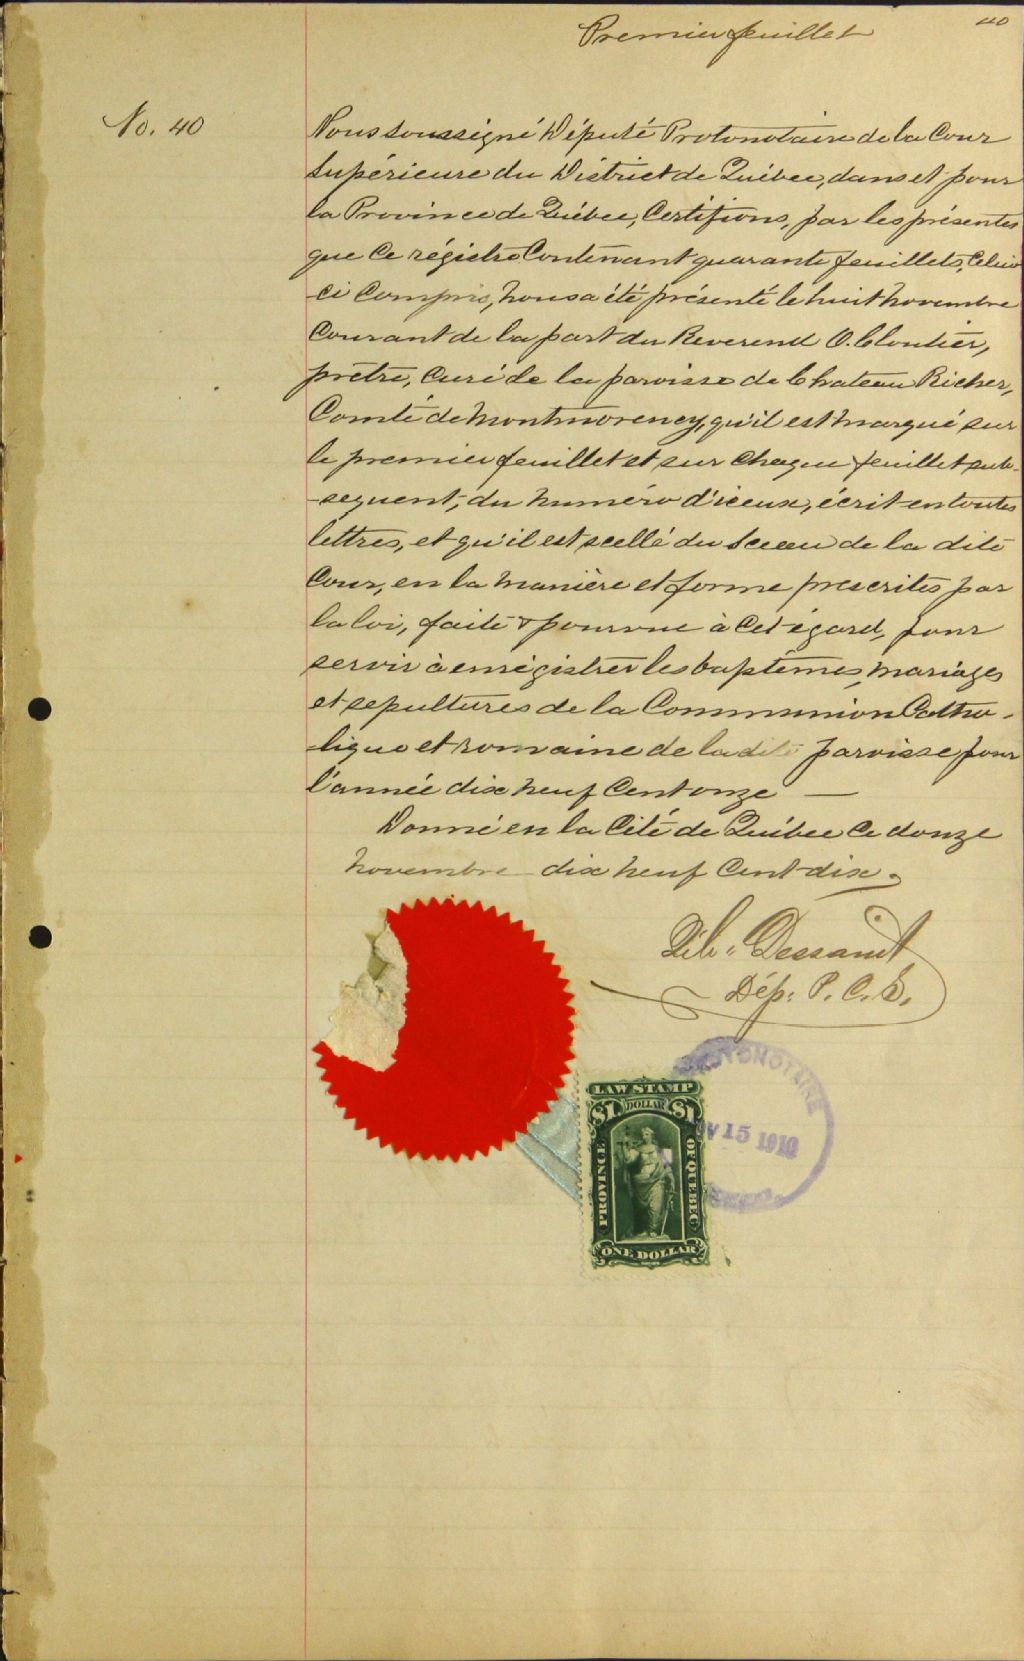 40
Premier feuillet
No. 40
Nous soussigné Député Protonotaire de la Cour
Supérieure du District de Québec, dans et pour
la Province de Québec, Certifions, par les présentes
que ce régistre Contenant quarante feuillets, celui
-ci Compris, nous a été présenté le huit novembre
Courant de la part du Reverend O. Cloutier,
prêtre, Curé de la paroisse de Chateau Richer,
Comté de Montmorency, qu'il est marqué sur
le premier feuillet et sur chaque feuillet sub-
-sequent, du numéro d'iceux, écrit en toutes
lettres, et qu'il est scellé du Sceau de la dite
Cour, en la manière et forme prescrites par
la loi, faite & pourvue à cet égard, pour
servir à enrégistrer les baptêmes, mariages
et sepultures de la Communion Catho-
-lique et romaine de la dite paroisse pour
l'année dix neuf Cent onze —
Donné en la Cité de Québec ce douze
novembre dix neuf Cent dix.
Dessault
Dép: P. C. S.
PROTONOTAIRE
V 15 1910
LAW STAMP
$1 DOLLAR $1
PROVINCE OF QUEBEC
ONE DOLLAR